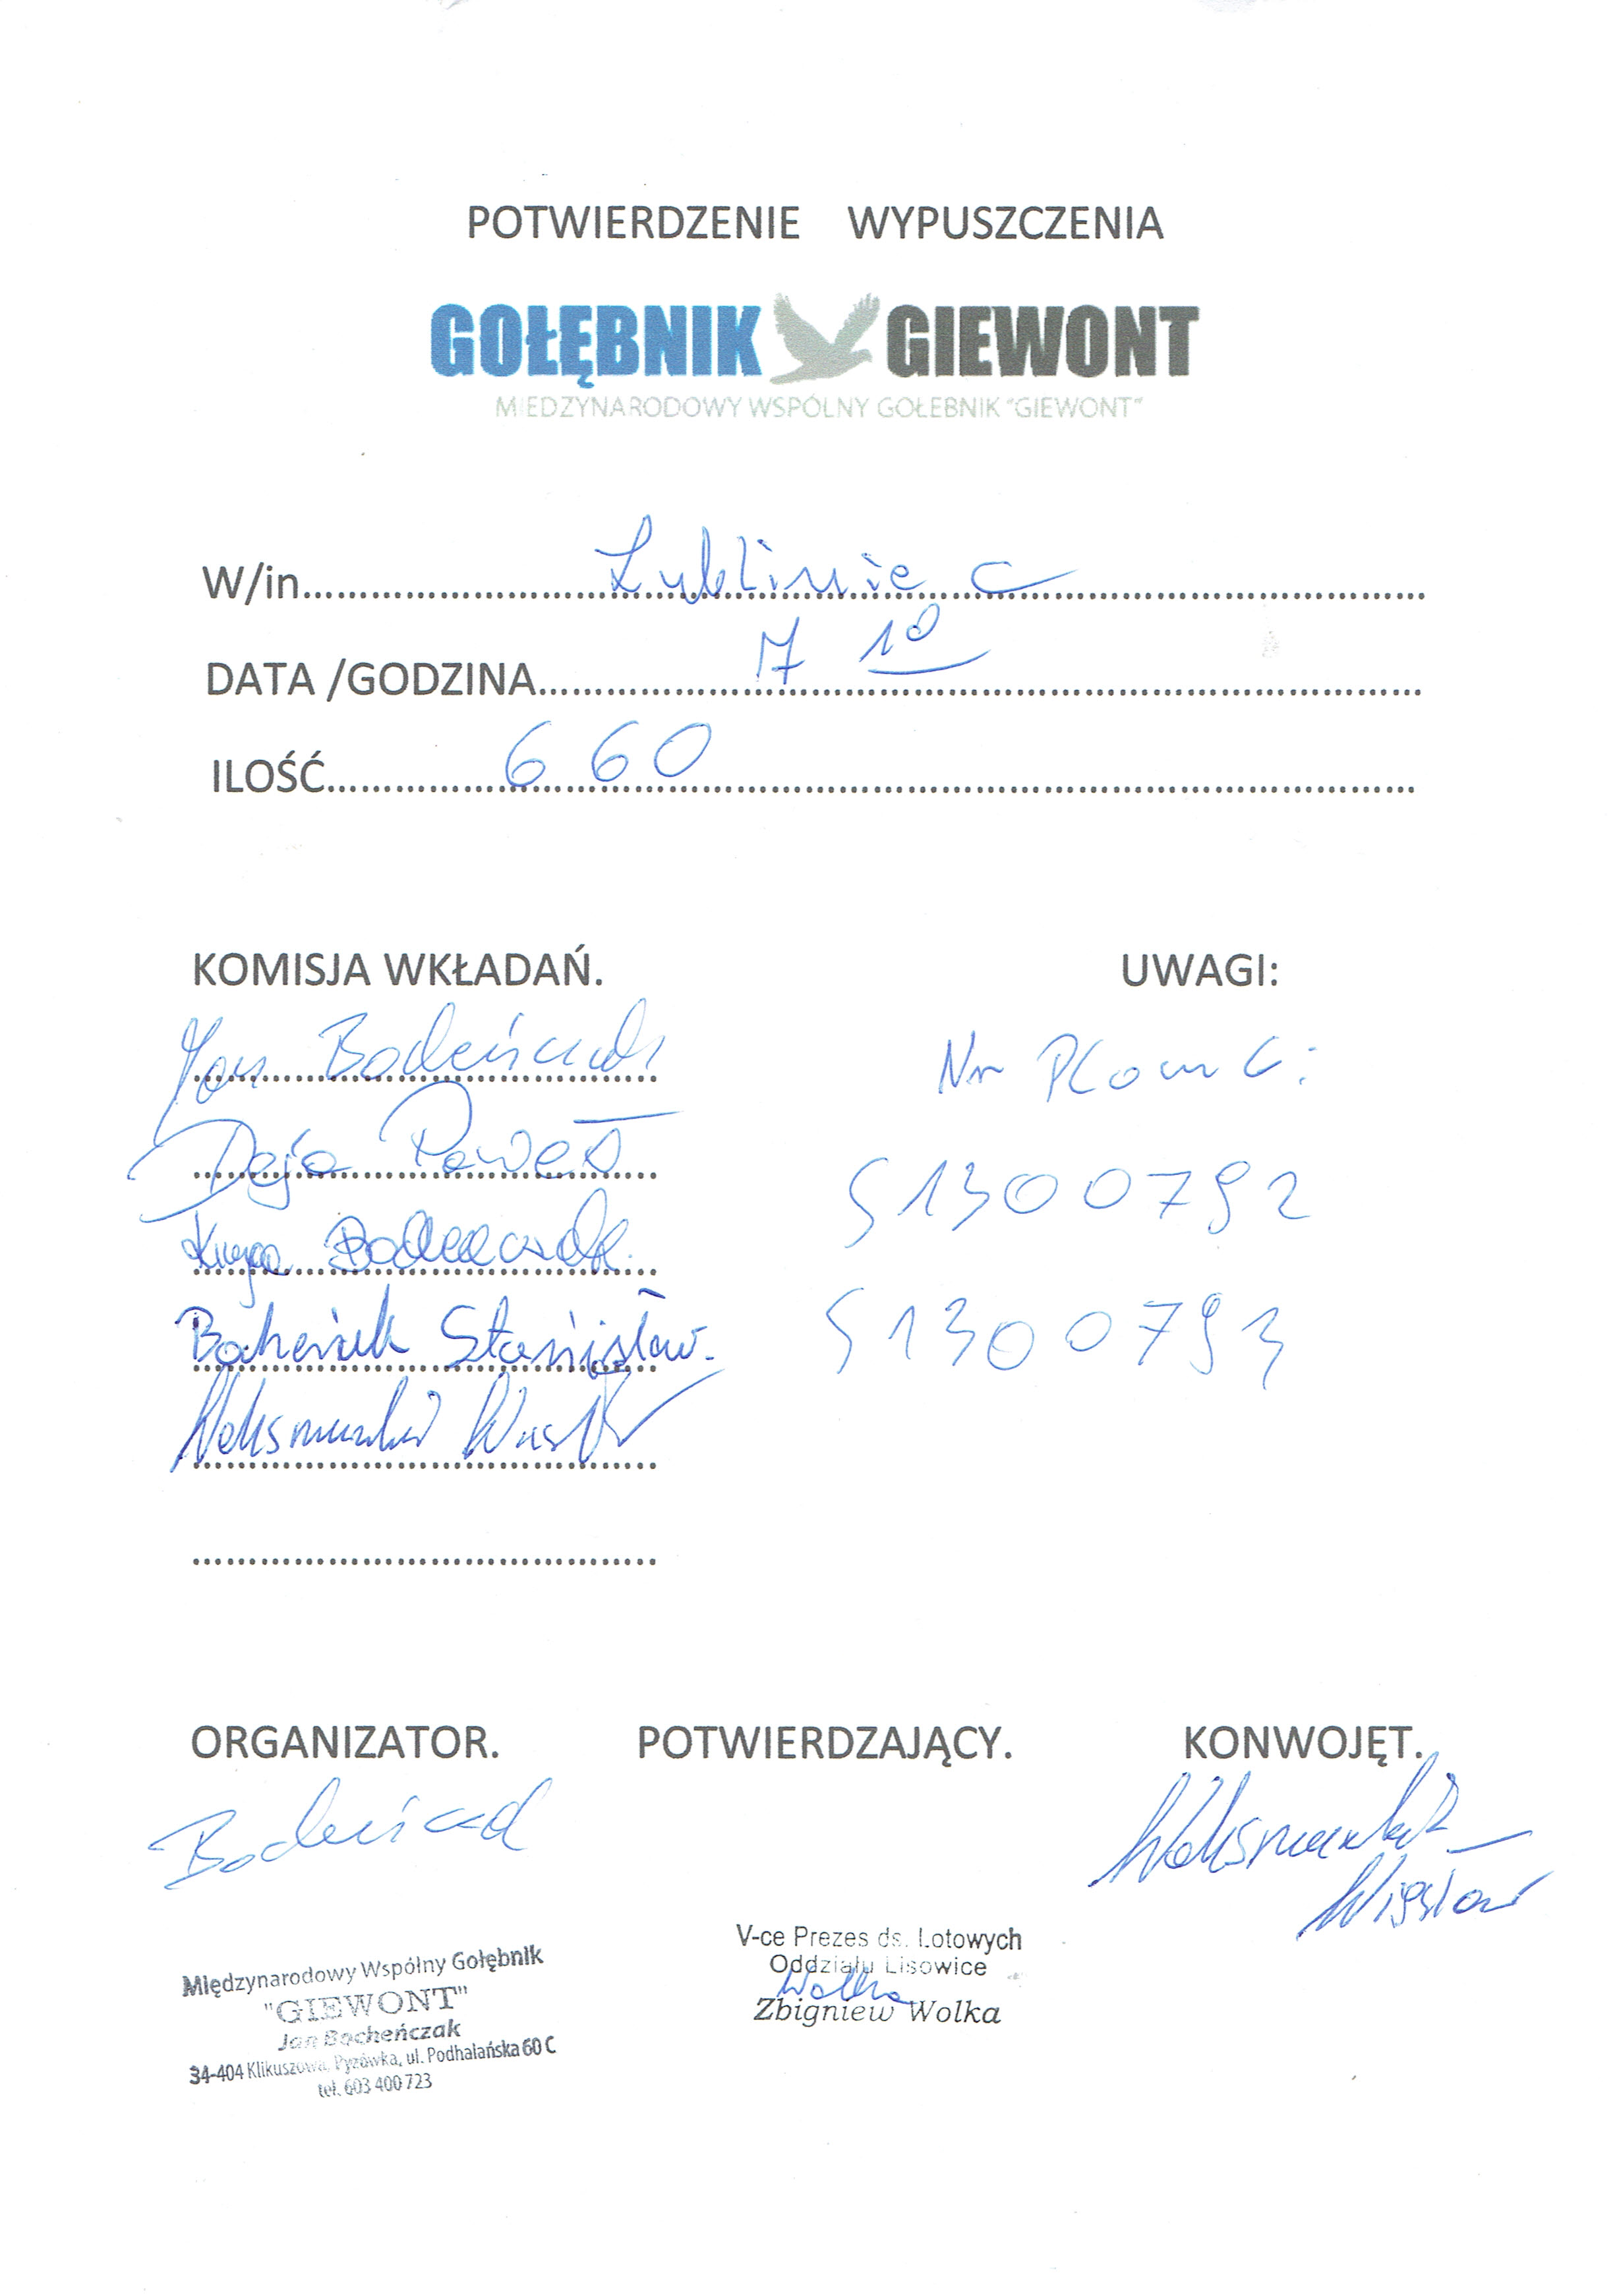 POTWIERDZENIE WYPUSZCZENIA
GOŁĘBNIK GIEWONT
MIEDZYNARODOWY WSPÓLNY GOŁEBNIK "GIEWONT"
W/in Lubliniec
DATA /GODZINA 7 10
ILOŚĆ 660
KOMISJA WKŁADAŃ. UWAGI:
Jan Bocheńczak Nr Plomb:
Deja Paweł S1300792
Kinga
S1300793
Stanisław
ORGANIZATOR. POTWIERDZAJĄCY. KONWOJĘT.
Wiesław
V-ce Prezes ds. Lotowych
Oddziału Lisowice
Wolka
Zbigniew Wolka
Międzynarodowy Wspólny Gołębnik
"GIEWONT"
Jan Bocheńczak
34-404 Klikuszowa, Pyzówka, ul. Podhalańska 60 C
tel. 603 400 723